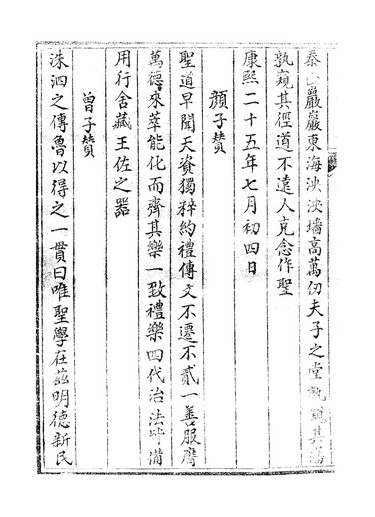 泰山巖巖東海泱泱墻高萬仞夫子之堂孰窺其藩
孰窺其徑道不遠人克念作聖
康熙二十五年七月初四日
顏子贊
聖道早聞天資獨粹約禮博文不遷不貳一善服膺
萬德來萃能化而齊其樂一致禮樂四代治法兼備
用行舍藏王佐之器
曾子贊
洙泗之傳魯以得之一貫曰唯聖學在茲明德新民